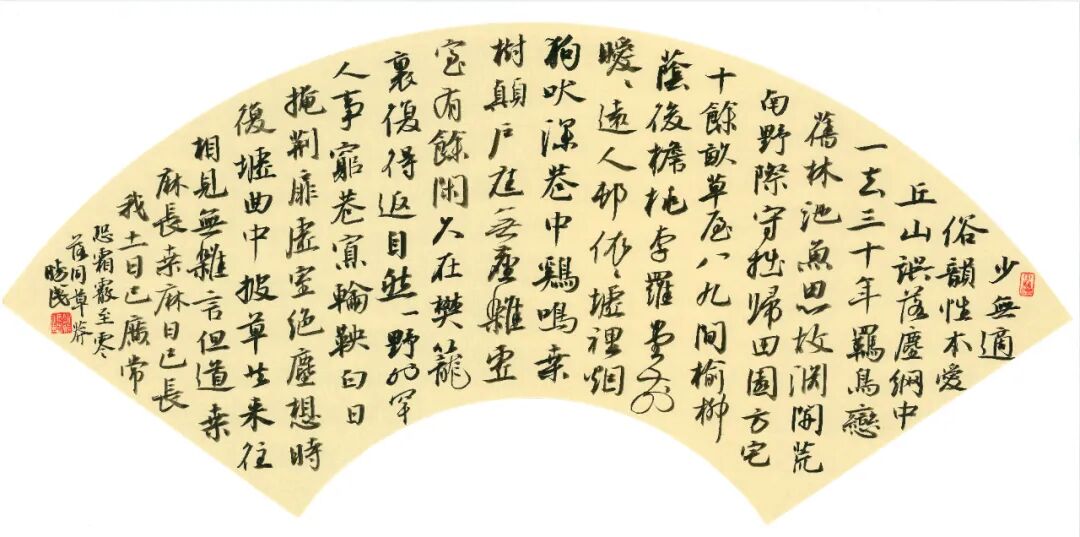 少無適
俗韻性本愛
丘山誤落塵網中
一去三十年羈鳥戀
舊林池魚思故渊開荒
南野際守拙歸田園方宅
十餘畝草屋八九間榆柳
蔭後檐桃李羅堂前
曖〻遠人邨依〻墟裡烟
狗吠深巷中鷄鳴桑
樹顛户庭無塵雜虛
室有餘閑久在樊籠
裏復得返自然野外罕
人事窮巷寡輪鞅白日
掩荆扉虛室絕塵想時
復墟曲中披草共来往
相見無雜言但道桑
麻長桑麻日已長
我土日已廣常
恐霜霰至零
落同草莽